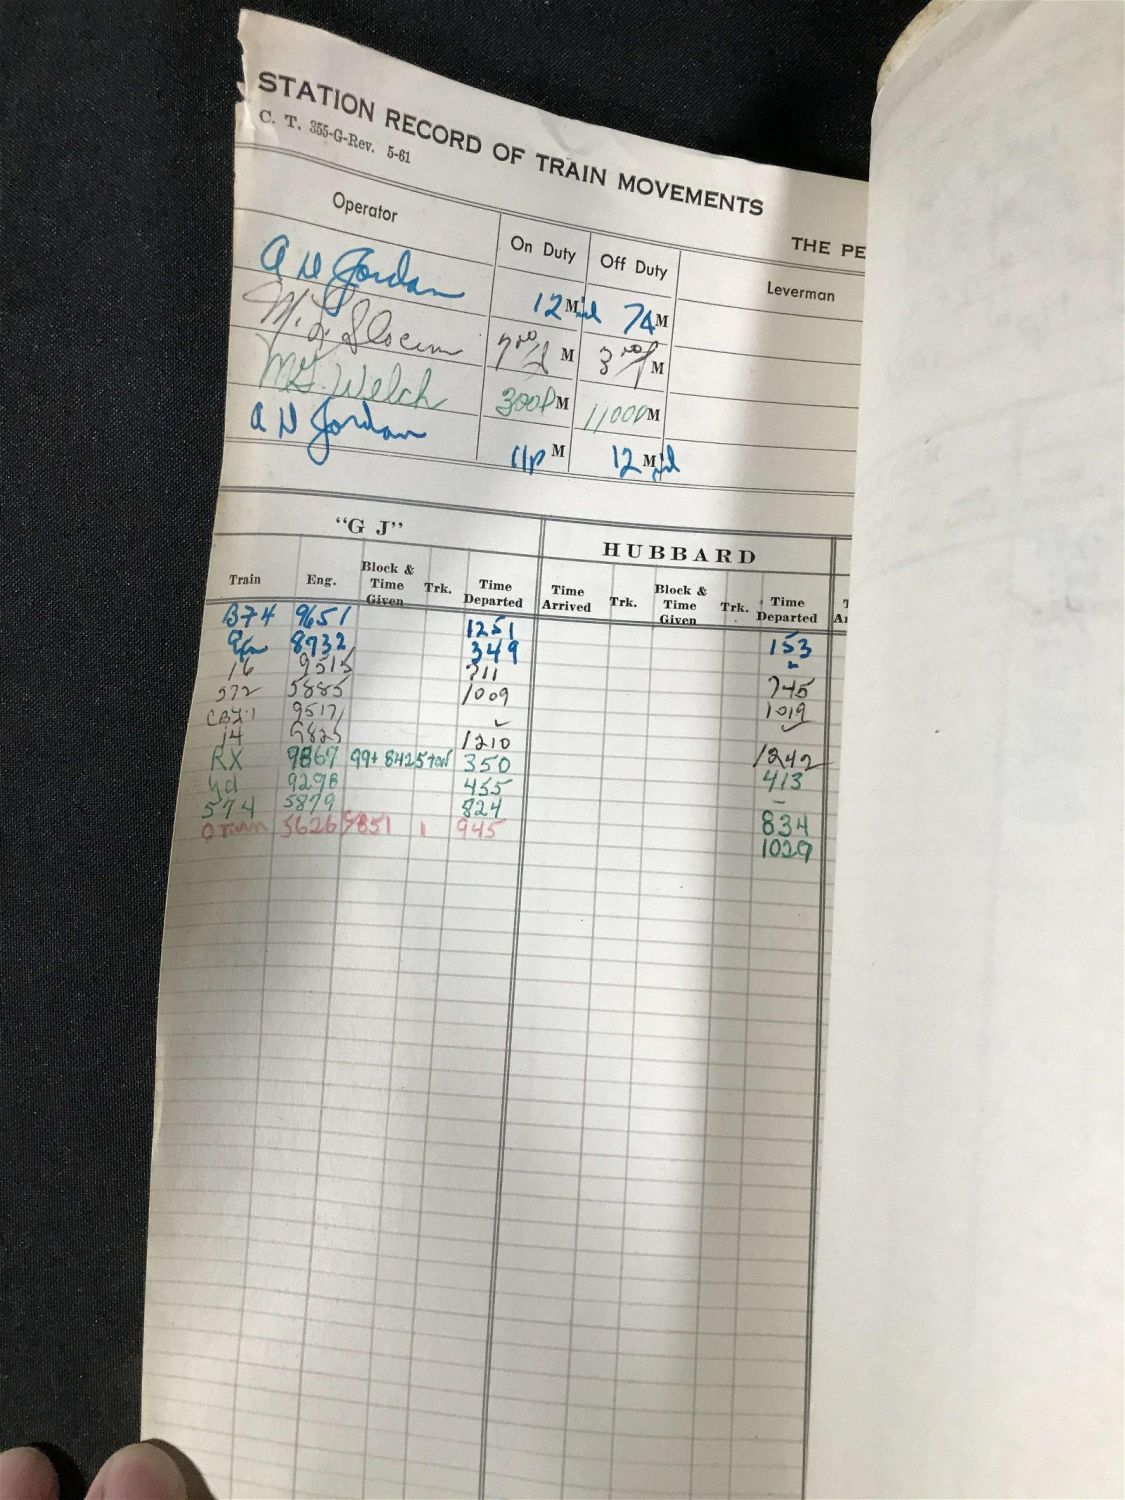 STATION RECORD OF TRAIN MOVEMENTS
C. T. 355-G-Rev. 5-61
THE PE
Operator On Duty Off Duty Leverman
A N Jordan 12 M 7A M
M. Slocum 7 00 A M 3 00 P M
Welch 300P M 1100P M
A N Jordan 11P M 12 M
“G J” HUBBARD
Train Eng. Block & Time Given Trk. Time Departed Time Arrived Trk. Block & Time Given Trk. Time Departed
B74 9651 1251 153
8932 349
16 9515 711 745
572 5885 1009 1019
9517
14 1210 1242
RX 9869 350 413
yd 9298 455 -
574 5879 824 834
5626 9851 1 945 1029